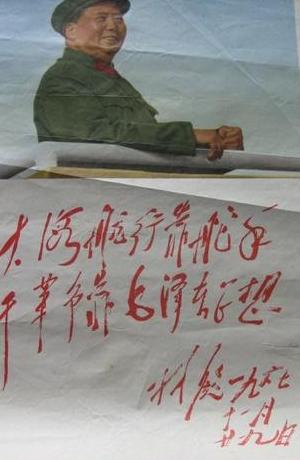 大海航行靠舵手
干革命靠毛泽东思想
林彪一九六七
十一月廿九日